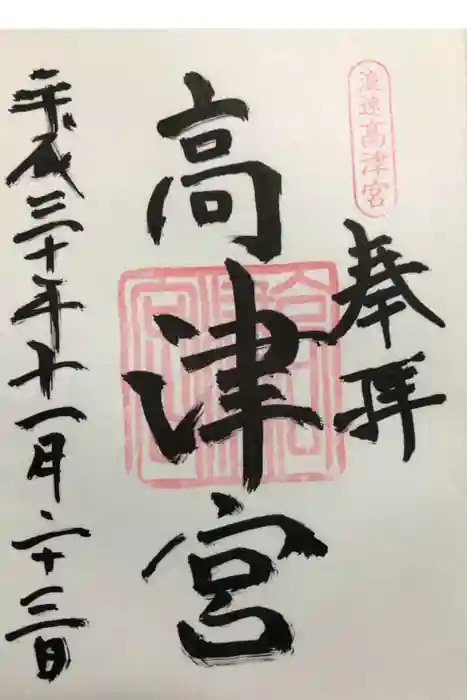 浪速高津宮
奉拝
高津宮
平成三十年十一月二十三日